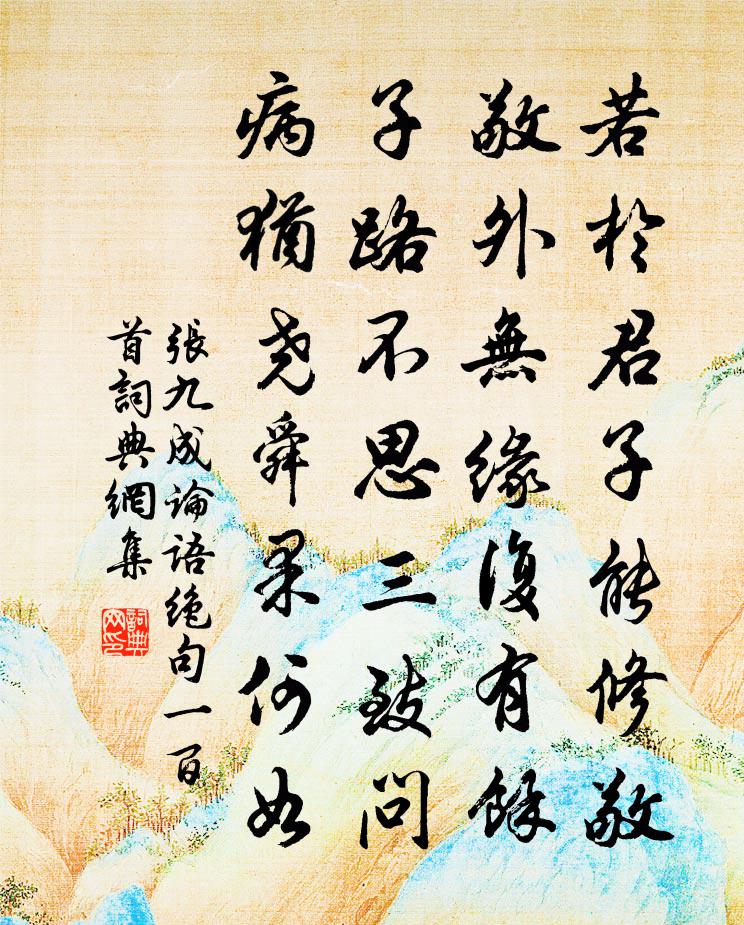 若於君子能修敬
敬外無緣復有餘
子路不思三致問
病猶尧舜果何如
張九成論語絶句一百
首詞典網集
詞典
网印